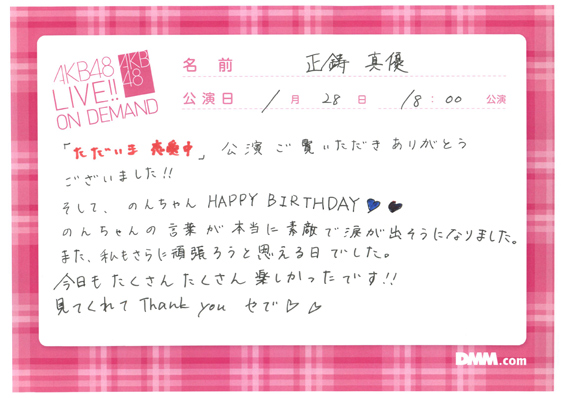 AKB48
LIVE!!
ON DEMAND
AKB
48
名前 正鋳 真優
公演日 1月 28日 18:00 公演
「ただいま 恋愛中」公演ご覧いただきありがとう
ございました!!
そして、のんちゃん HAPPY BIRTHDAY
のんちゃんの言葉が本当に素敵で涙が出そうになりました。
また、私もさらに頑張ろうと思える日でした。
今日もたくさんたくさん楽しかったです!!
見てくれて Thank you せで
DMM.com